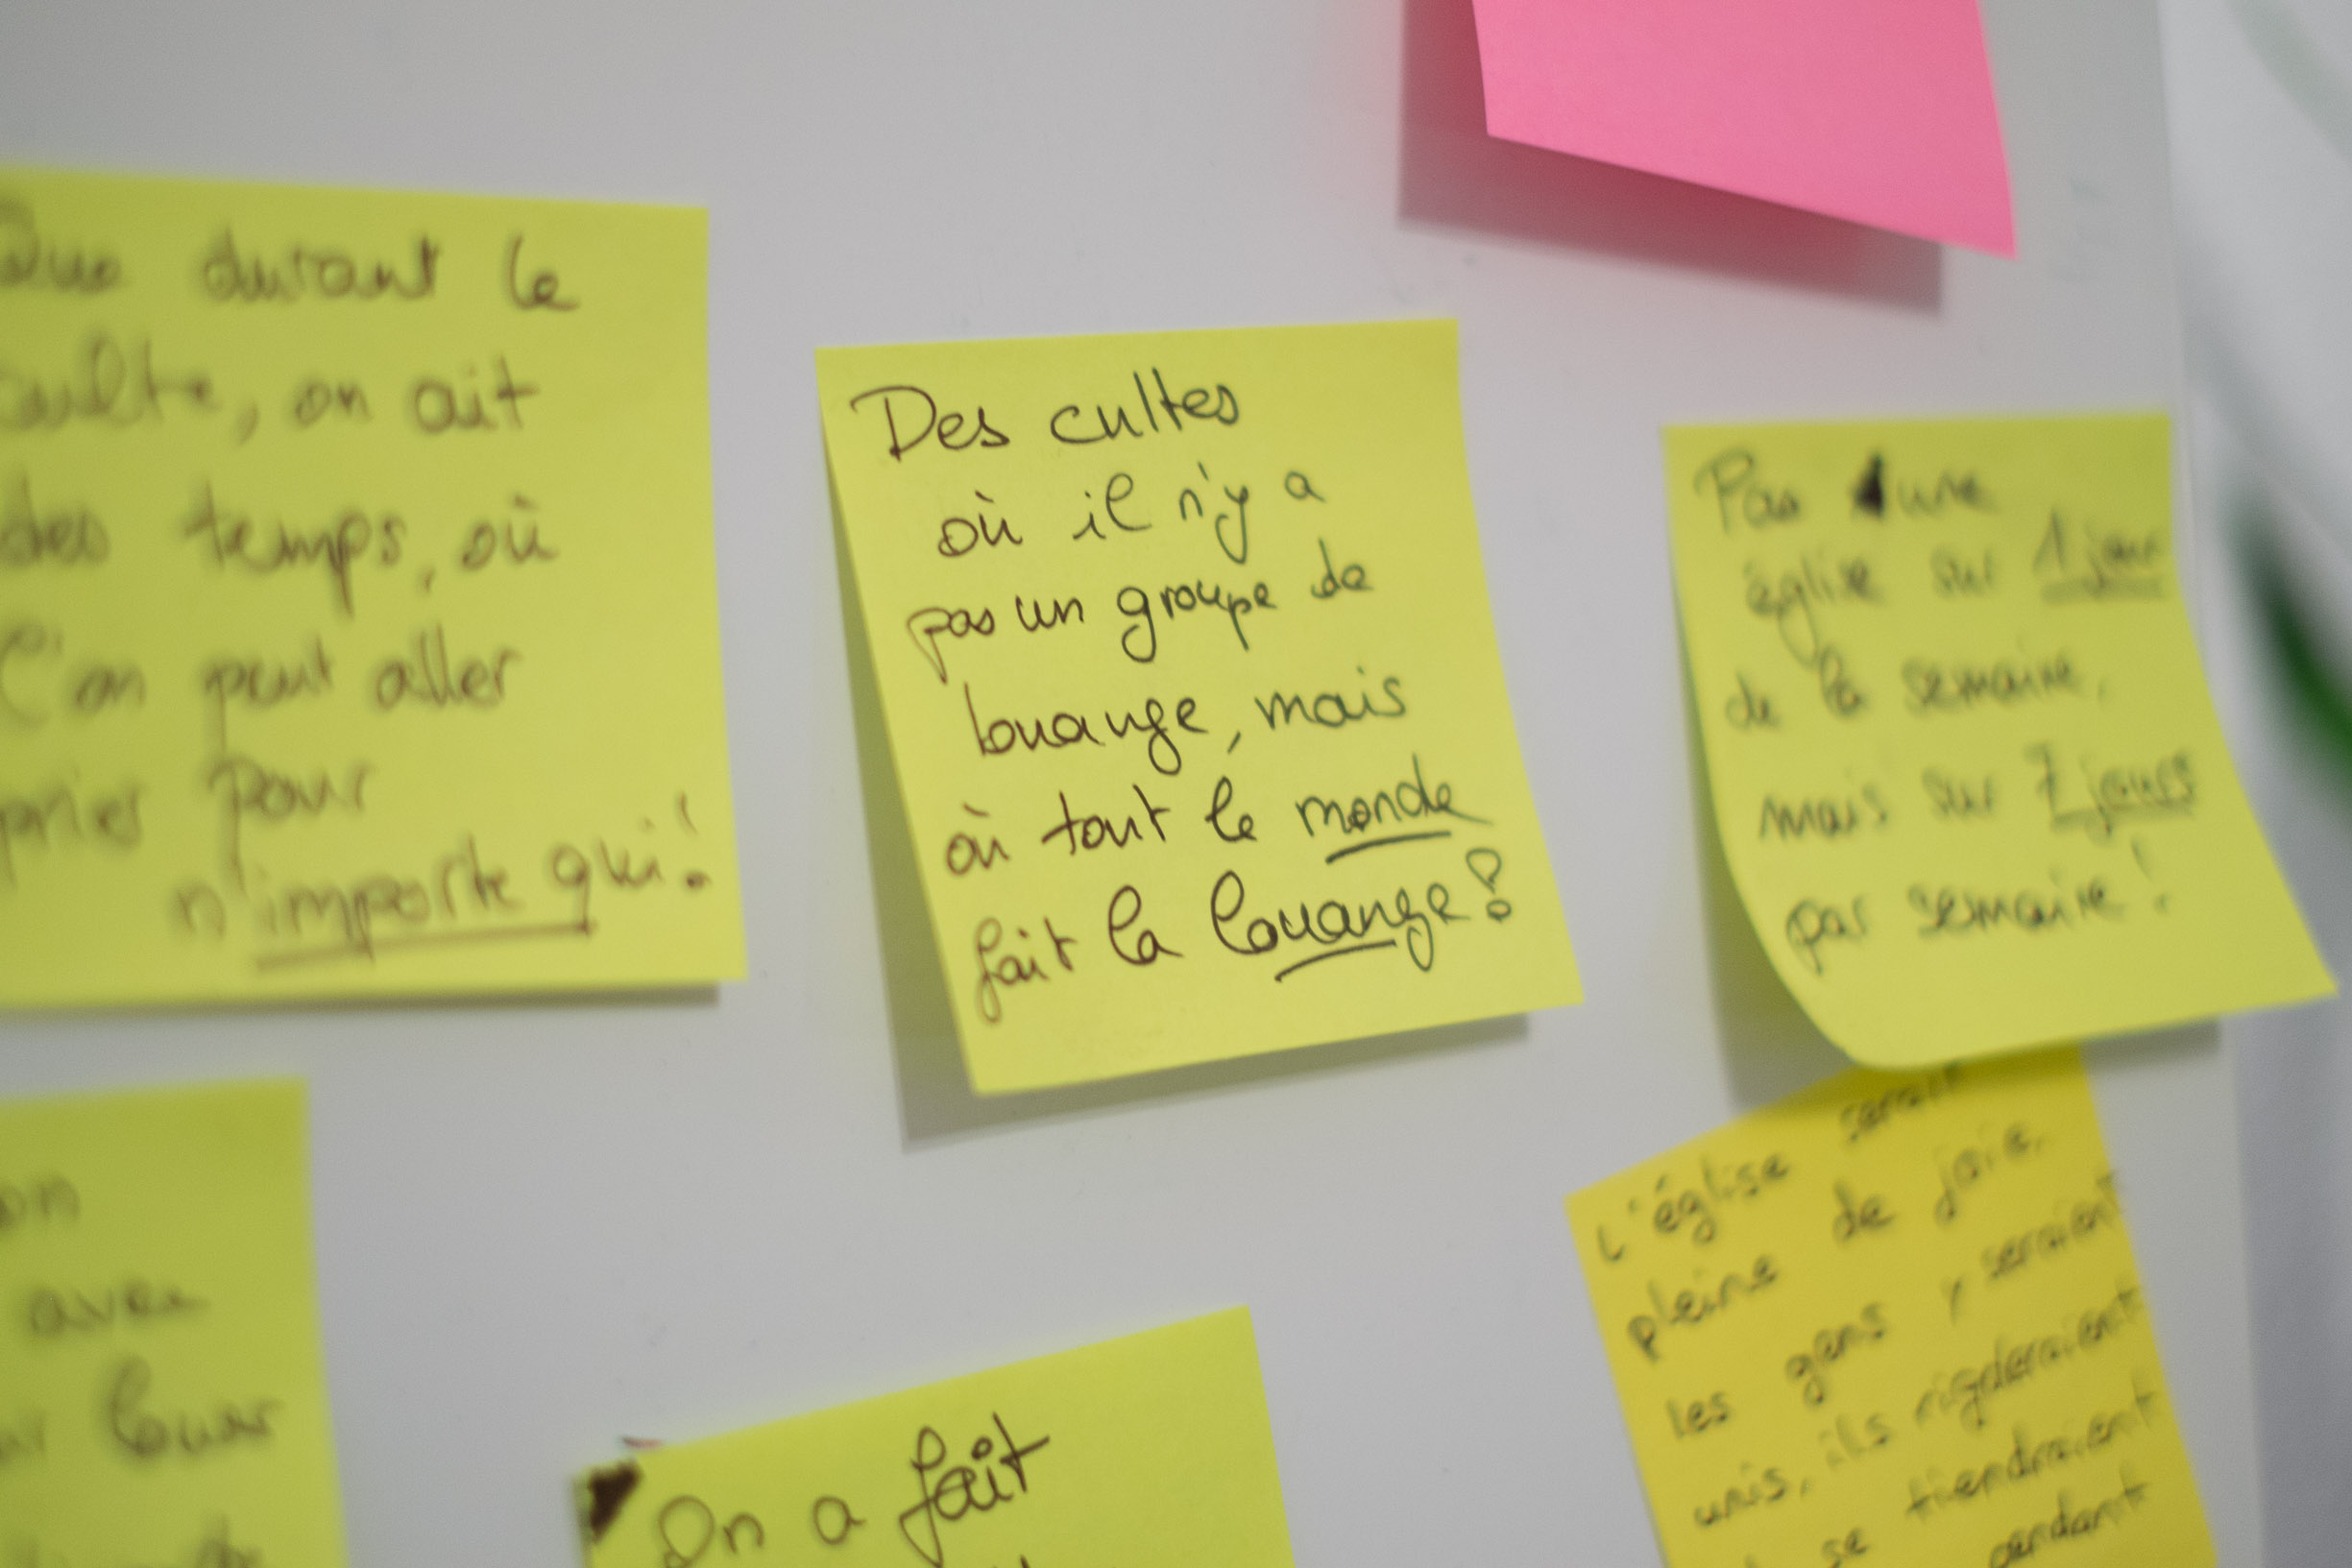 Que durant le
culte, on ait
des temps, où
l'on peut aller
prier pour
n'importe qui!
Des cultes
où il n'y a
pas un groupe de
louange, mais
où tout le monde
fait la louange!
Pas une
église sur 1 jour
de la semaine,
mais sur 7 jours
par semaine!
L'église serait
pleine de joie.
les gens y seraient
unis, ils rigoleraient
se tiendraient
pendant
on
avec
louer
On a fait